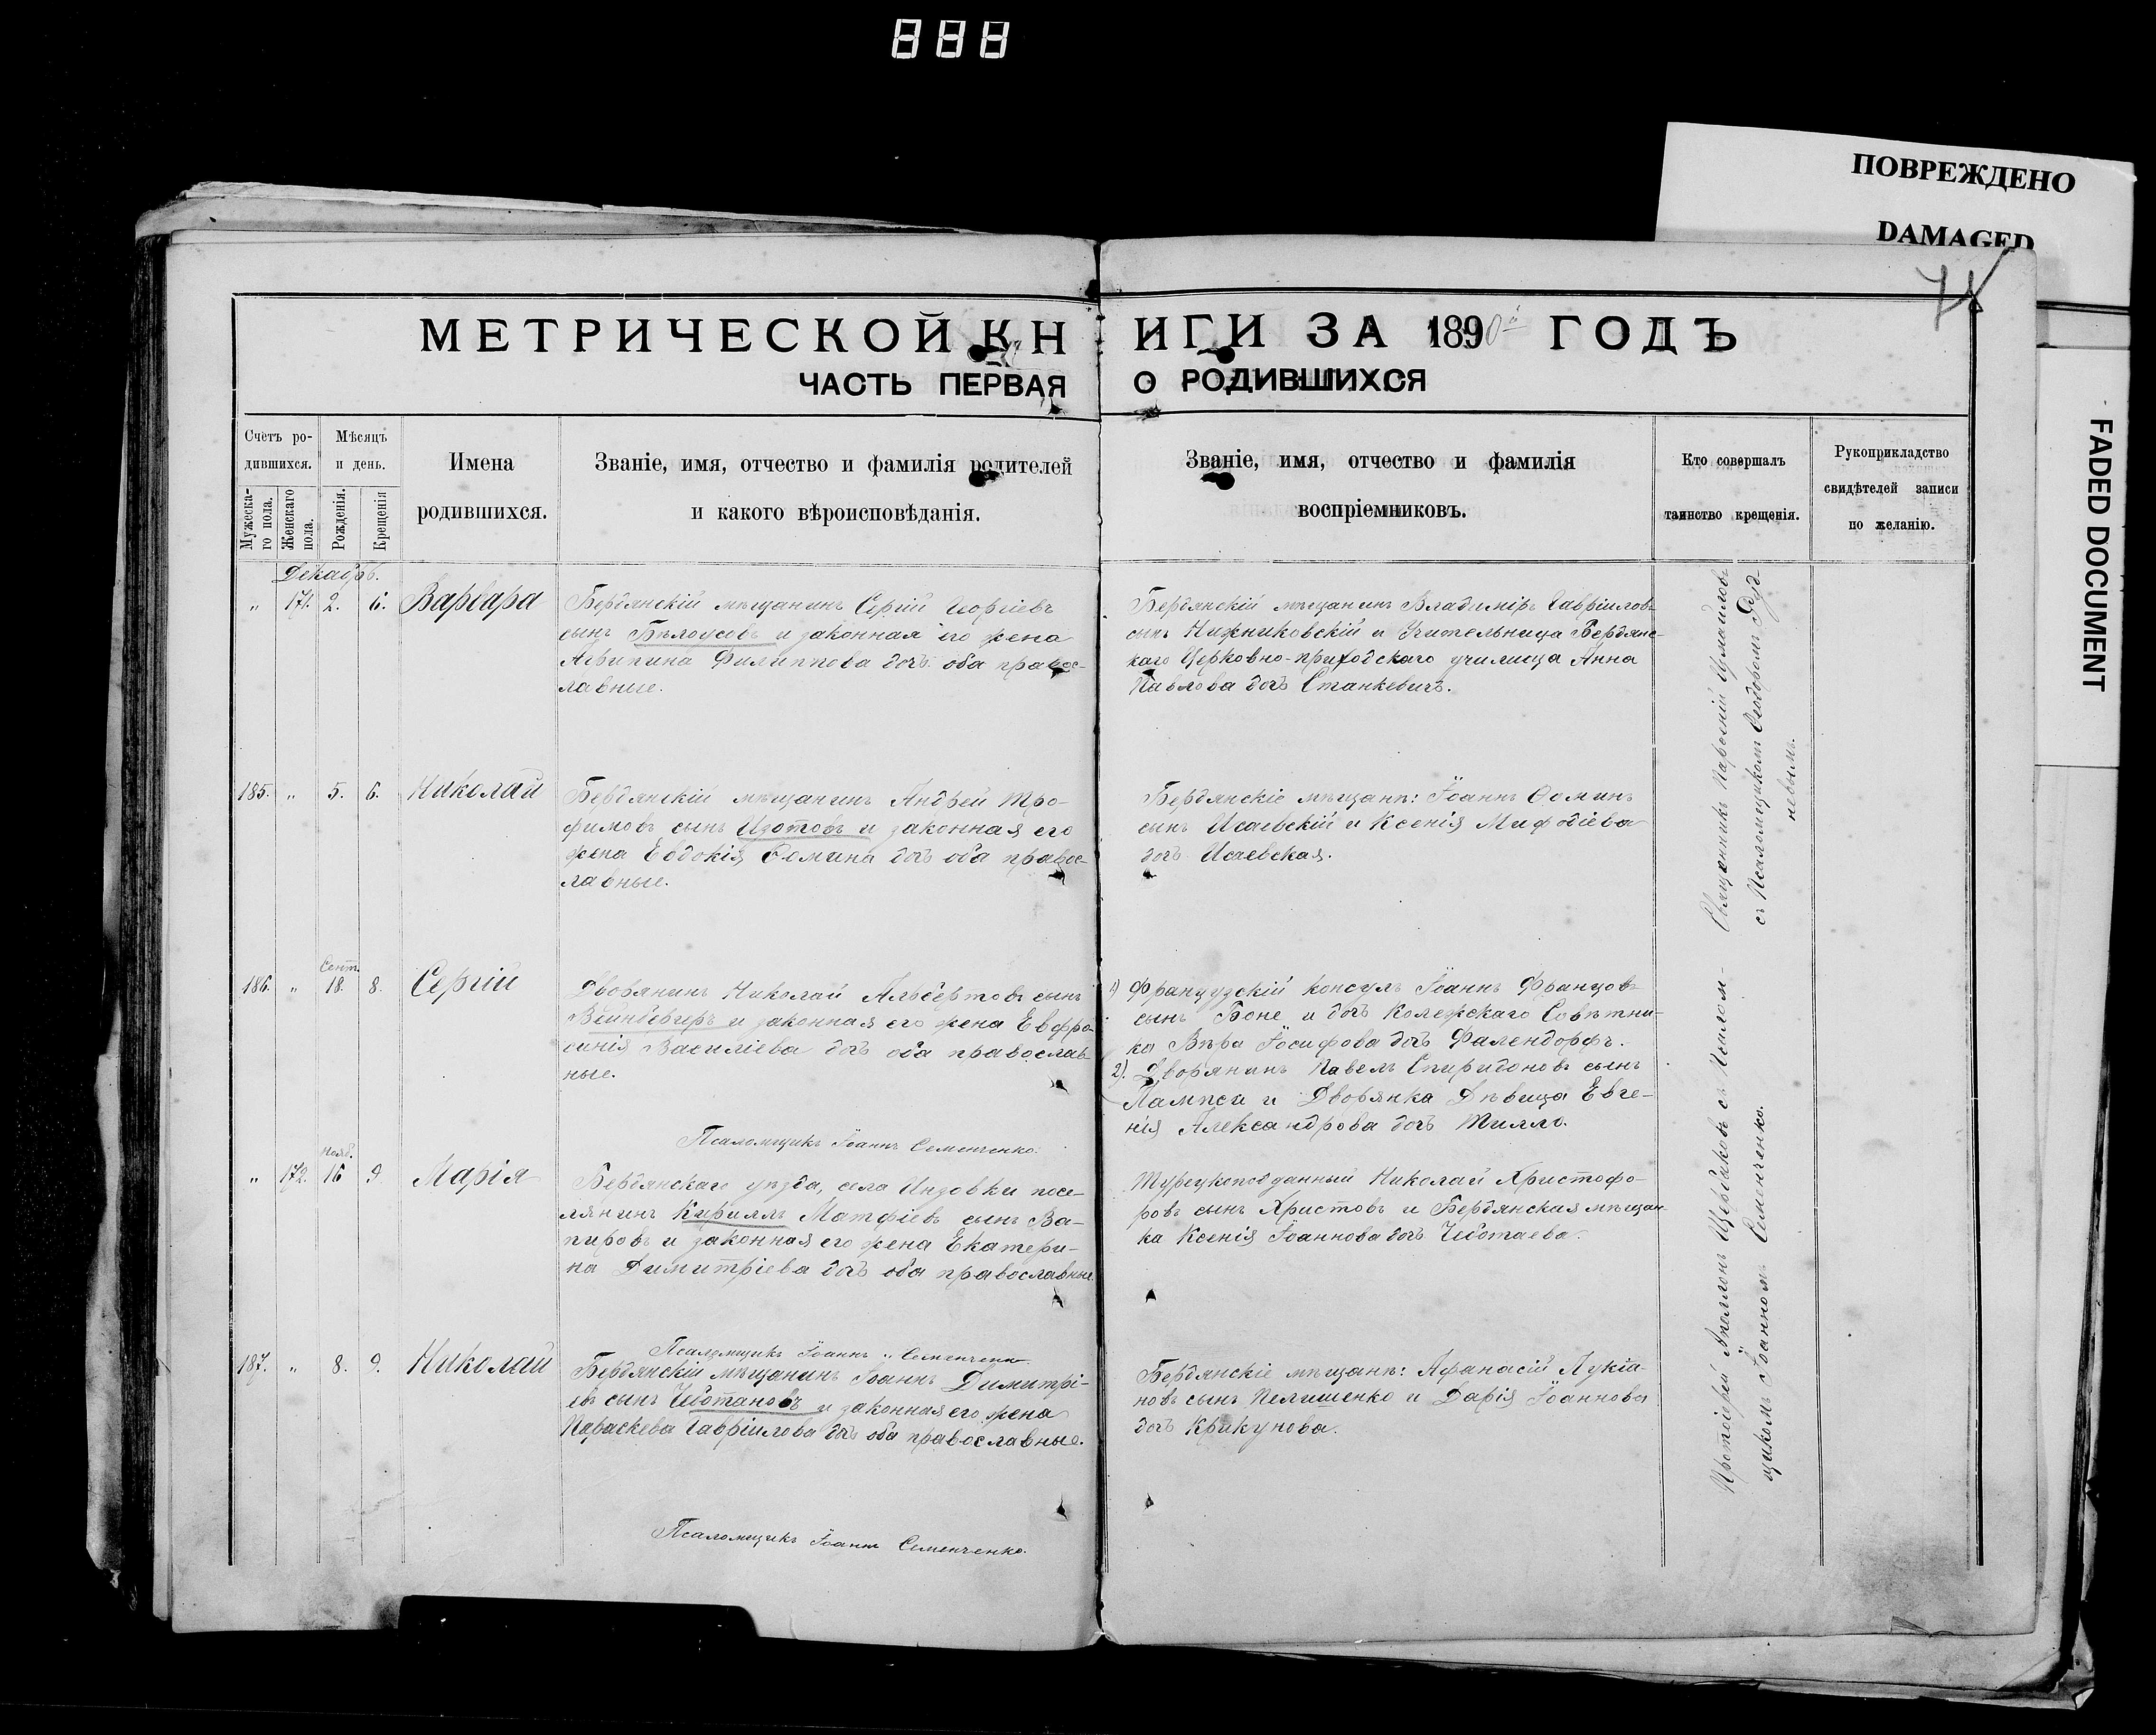 888
ПОВРЕЖДЕНО
DAMAGED
FADED DOCUMENT
МЕТРИЧЕСКОЙ КНИГИ ЗА 1890й ГОДЪ
ЧАСТЬ ПЕРВАЯ О РОДИВШИХСЯ
Счетъ родившихся.
Мужескаго пола.
Женскаго пола.
Мѣсяцъ и день.
Рожденія.
Крещенія
Имена родившихся.
Званіе, имя, отчество и фамилія родителей
и какого вѣроисповѣданія.
Званіе, имя, отчество и фамилія
воспріемниковъ.
Кто совершалъ
таинство крещенія.
Рукоприкладство
свидѣтелей записи
по желанію.
Декабрь.
" 171. 2. 6. Варвара
Бердянскій мѣщанинъ Сергій Георгіевъ
сынъ Бѣлоусовъ и законная его жена
Агрипина Филиппова дочь оба правос-
лавные.
Бердянскій мѣщанинъ Владиміръ Гавріиловъ
сынъ Нижниковскій и Учительница Бердянс-
каго Церковно-приходскаго училища Анна
Павлова дочь Станкевичъ.
185. " 5. 6. Николай
Бердянскій мѣщанинъ Андрей Тро-
фимовъ сынъ Изотовъ и законная его
жена Евдокія Ѳомина дочь оба правос-
лавные.
Бердянскіе мѣщане: Іоаннъ Ѳоминъ
сынъ Исаевскій и Ксенія Мифодіева
дочь Исаевская.
Священникъ Измаиловъ
съ Псаломщикомъ Ѳеодоромъ Руд-
невымъ.
Сент.
186. " 18. 8. Сергій
Дворянинъ Николай Альбертовъ сынъ
Вейнбергеръ и законная его жена Евфро-
синія Василіева дочь оба православ-
ные.
Псаломщикъ Іоаннъ Семенченко.
1) Французскій консулъ Іоаннъ Францовъ
сынъ Боне и дочь Колежскаго Совѣтни-
ка Вѣра Іосифова дочь Фалендорфъ.
2). Дворянинъ Павелъ Спиридоновъ сынъ
Лампси и Дворянка Дѣвица Евге-
нія Александрова дочь Тилло.
Нояб.
" 172. 16 9. Марія
Бердянскаго уѣзда, села Инзовки посе-
лянинъ Кириллъ Матфіевъ сынъ Ва-
пировъ и законная его жена Екатери-
на Димитріева дочь оба православные.
Псаломщикъ Іоаннъ Семенченко
Турецкоподданный Николай Христофо-
ровъ сынъ Христовъ и Бердянская мѣщан-
ка Ксенія Іоаннова дочь Чеботаева.
187. " 8. 9. Николай
Бердянскій мѣщанинъ Іоаннъ Димитрі-
евъ сынъ Чеботановъ и законная его жена
Параскева Гавріилова дочь оба православные.
Псаломщикъ Іоаннъ Семенченко.
Бердянскіе мѣщане: Афанасій Лукіа-
новъ сынъ Пелишенко и Дарія Іоаннова
дочь Крикунова.
Протоіерей Аполлонъ Щербаковъ съ Псалом-
щикомъ Іоанномъ Семенченко.